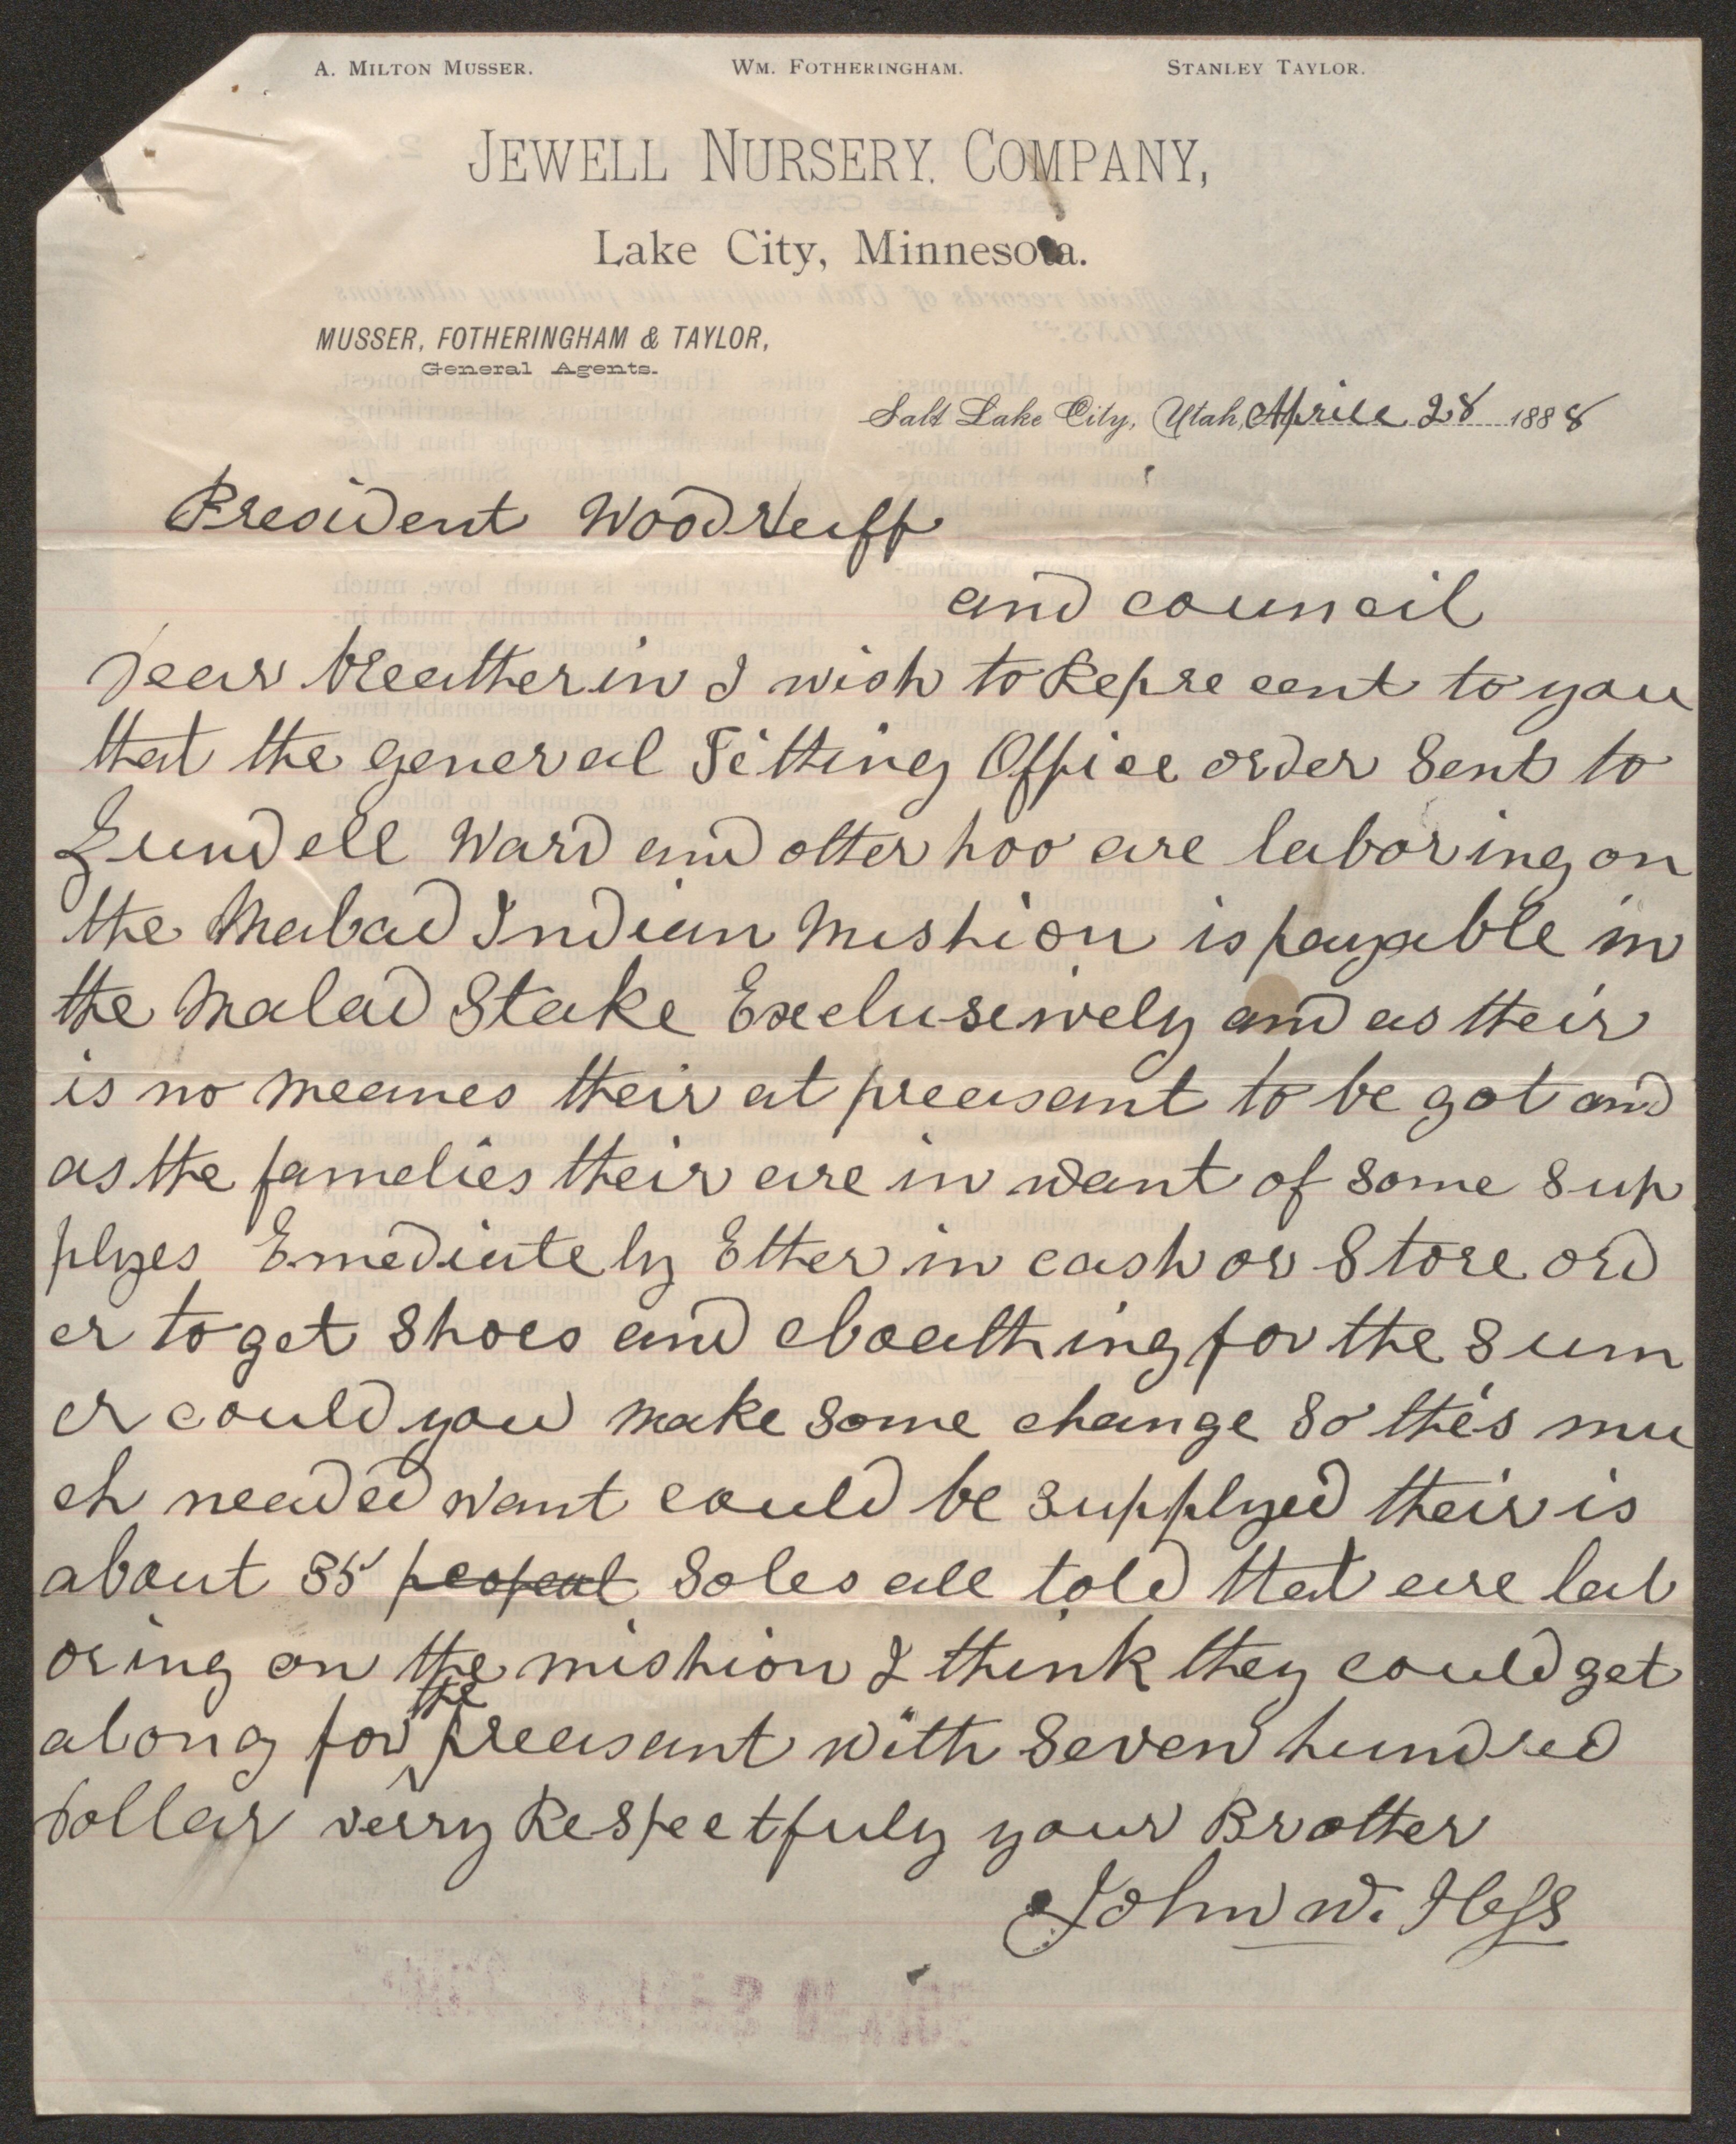 A. Milton Musser. Wm. Fotheringham. Stanley Taylor.
Jewell Nursery Company,
Lake City, Minnesota.
Musser, Fotheringham & Taylor,
General Agents.
Salt Lake City, Utah, Aprill 28 1888
President Woodruff
and council
Dear breatherin I wish to Repre cent to you
that the general Titting Office order Sent to
Zundell Ward and other hoo are laboring on
the Malad Indian Mishion is payable in
the Malad Stake Exclusiwely and as their
is no meanes their at preasant to be got and
as the famelies their are in want of some sup
plyes Emediately Ether in cash or Store ord
er to get Shoes and cloathing for the Sum
er could you make some change So this mu
ch needed want could be supplyed their is
about 35 peopeal Soles all told that are lab
oring on the mishion I think they could get
along for the preasant with Seven hundred
Dollar verry Respectfuly your Brother
John W. Hess